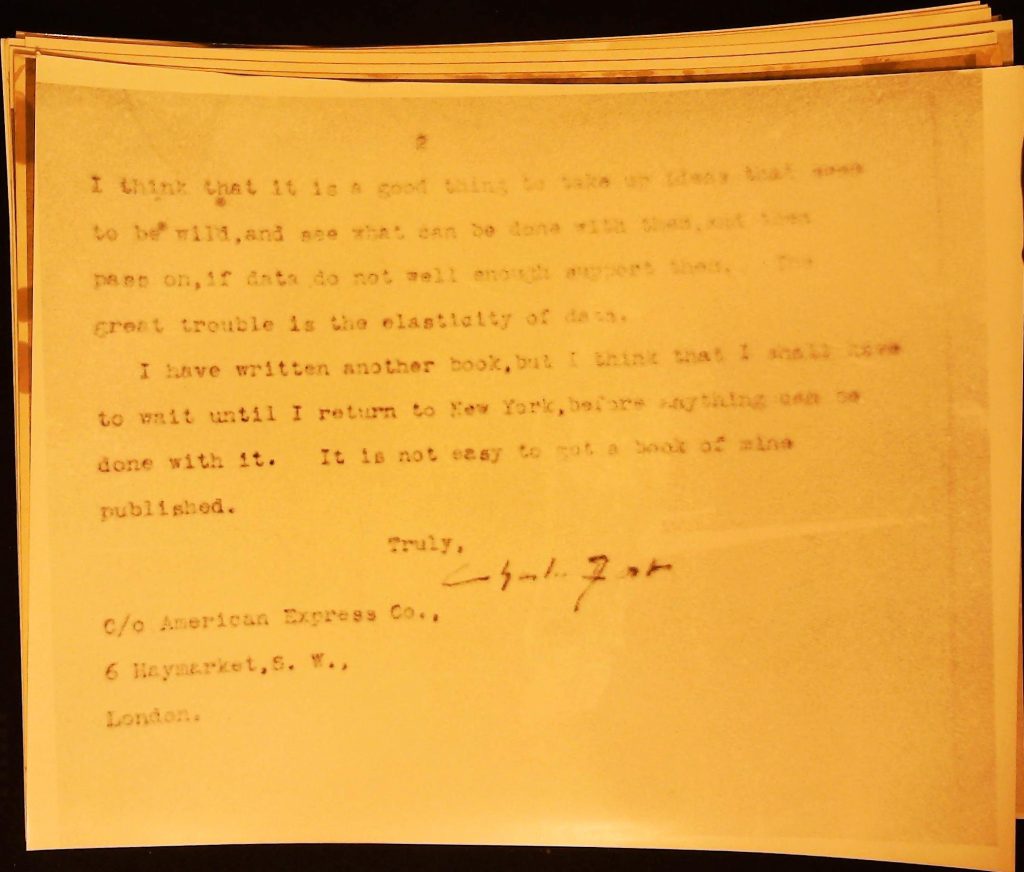 2
I think that it is a good thing to take up ideas that seem
to be wild,and see what can be done with them,and then
pass on,if data do not well enough support them. The
great trouble is the elasticity of data.
I have written another book,but I think that I shall have
to wait until I return to New York,before anything can be
done with it. It is not easy to get a book of mine
published.
Truly,
Charles Fort
C/o American Express Co.,
6 Haymarket,S. W.,
London.